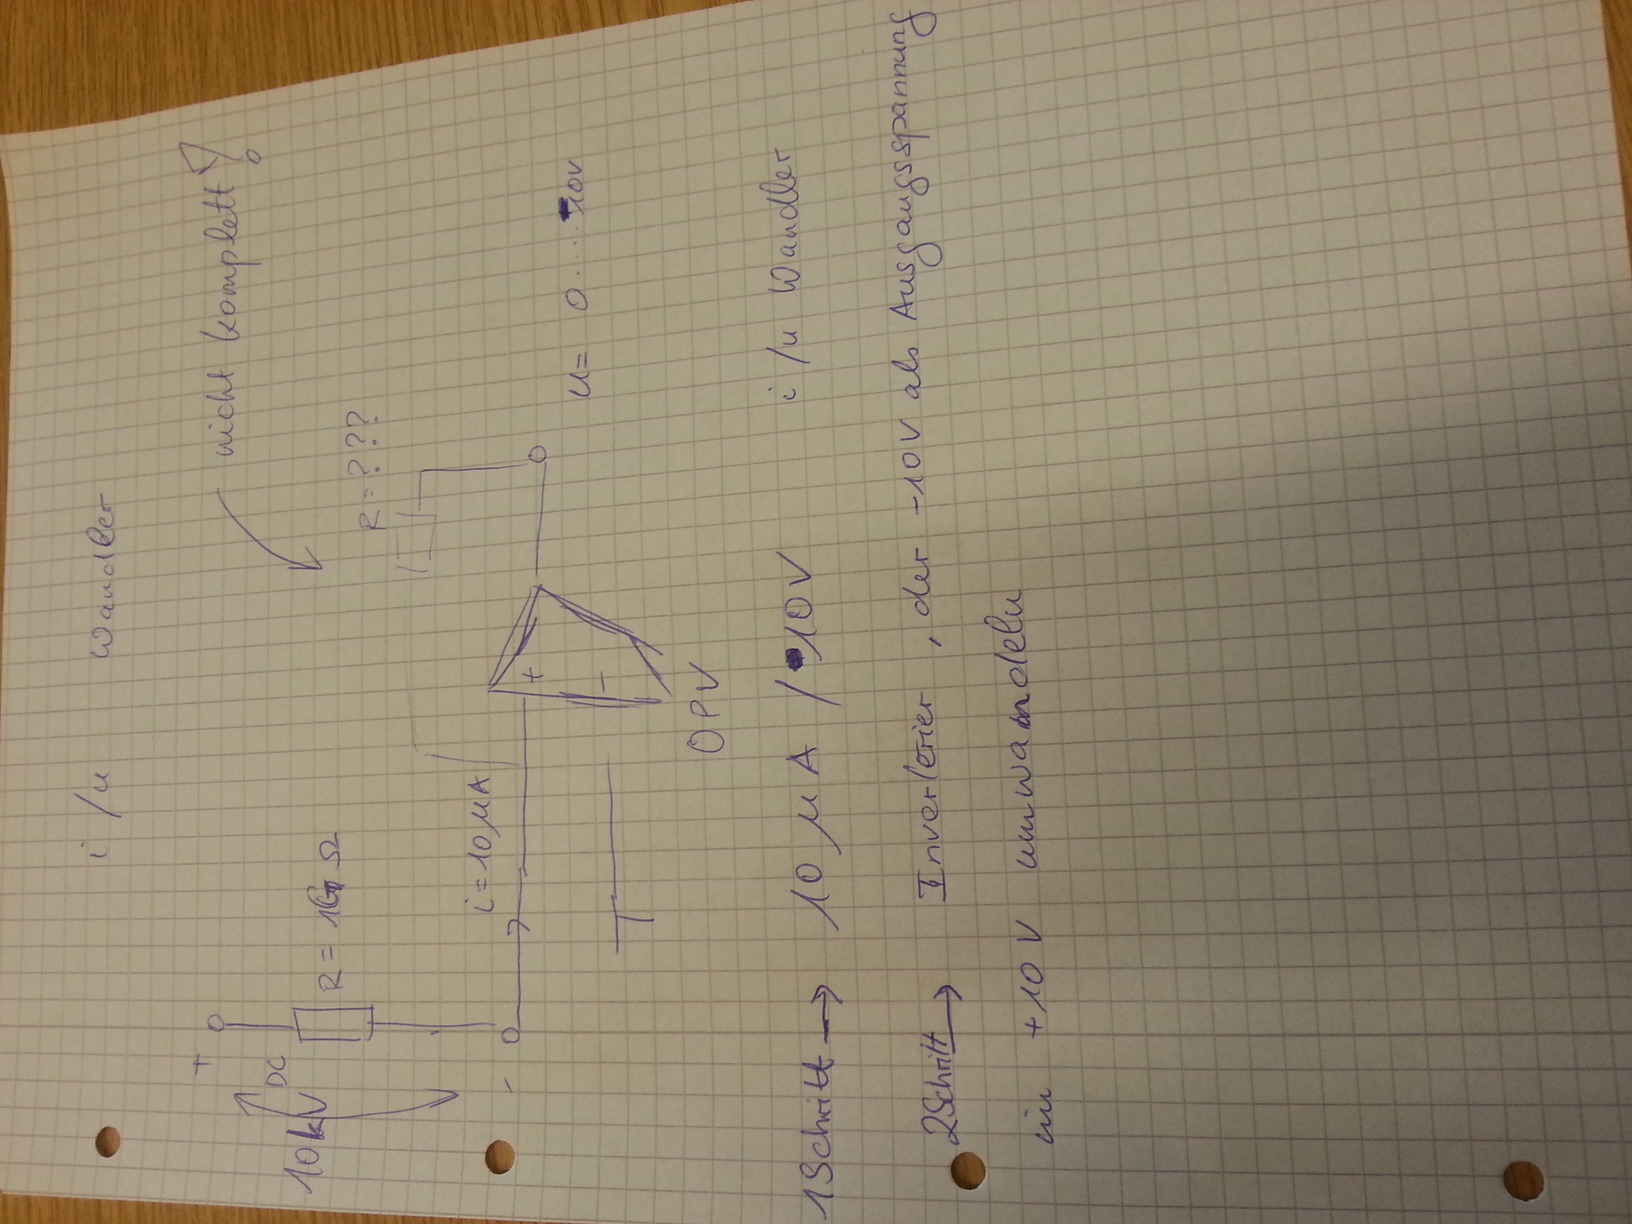 i/u Wandler
nicht komplett!
10kV DC
+
R = 1G Ω
R = ???
i = 10 μA
+
-
-
OPV
u = 0....10V
1Schritt → 10 μA / 10V i/u Wandler
2Schritt → Invertierer, der -10V als Ausgangsspannung
in +10V umwandeln